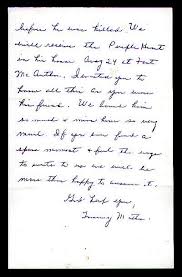 before he was killed. We
will receive the Purple Heart
in his honor Aug 24 at Fort
Mc Arthur. I wanted you to
know all this as you were
his friend. We loved him
so much & miss him so very
much. If you ever find a
spare moment & feel the urge
to write to us we will be
more than happy to answer it.
God bless you,